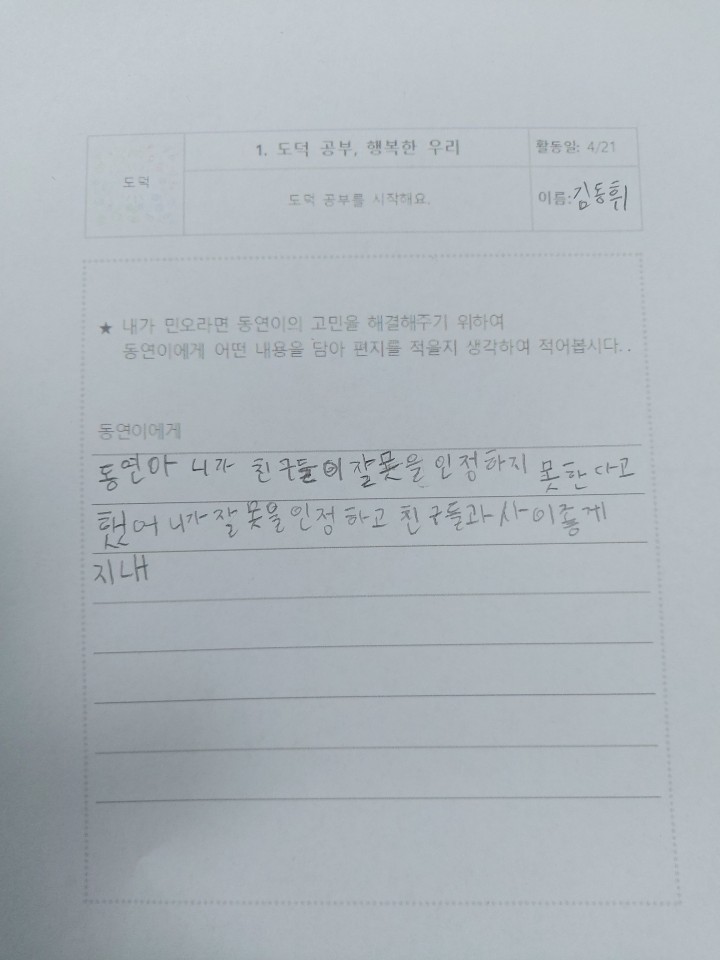 도덕
1. 도덕 공부, 행복한 우리
활동일: 4/21
도덕 공부를 시작해요.
이름: 김동휘
★ 내가 민오라면 동연이의 고민을 해결해주기 위하여
동연이에게 어떤 내용을 담아 편지를 적을지 생각하여 적어봅시다..
동연이에게
동연아 니가 친구들이 잘못을 인정하지 못한다고
했어 니가 잘못을 인정하고 친구들과 사이좋게
지내